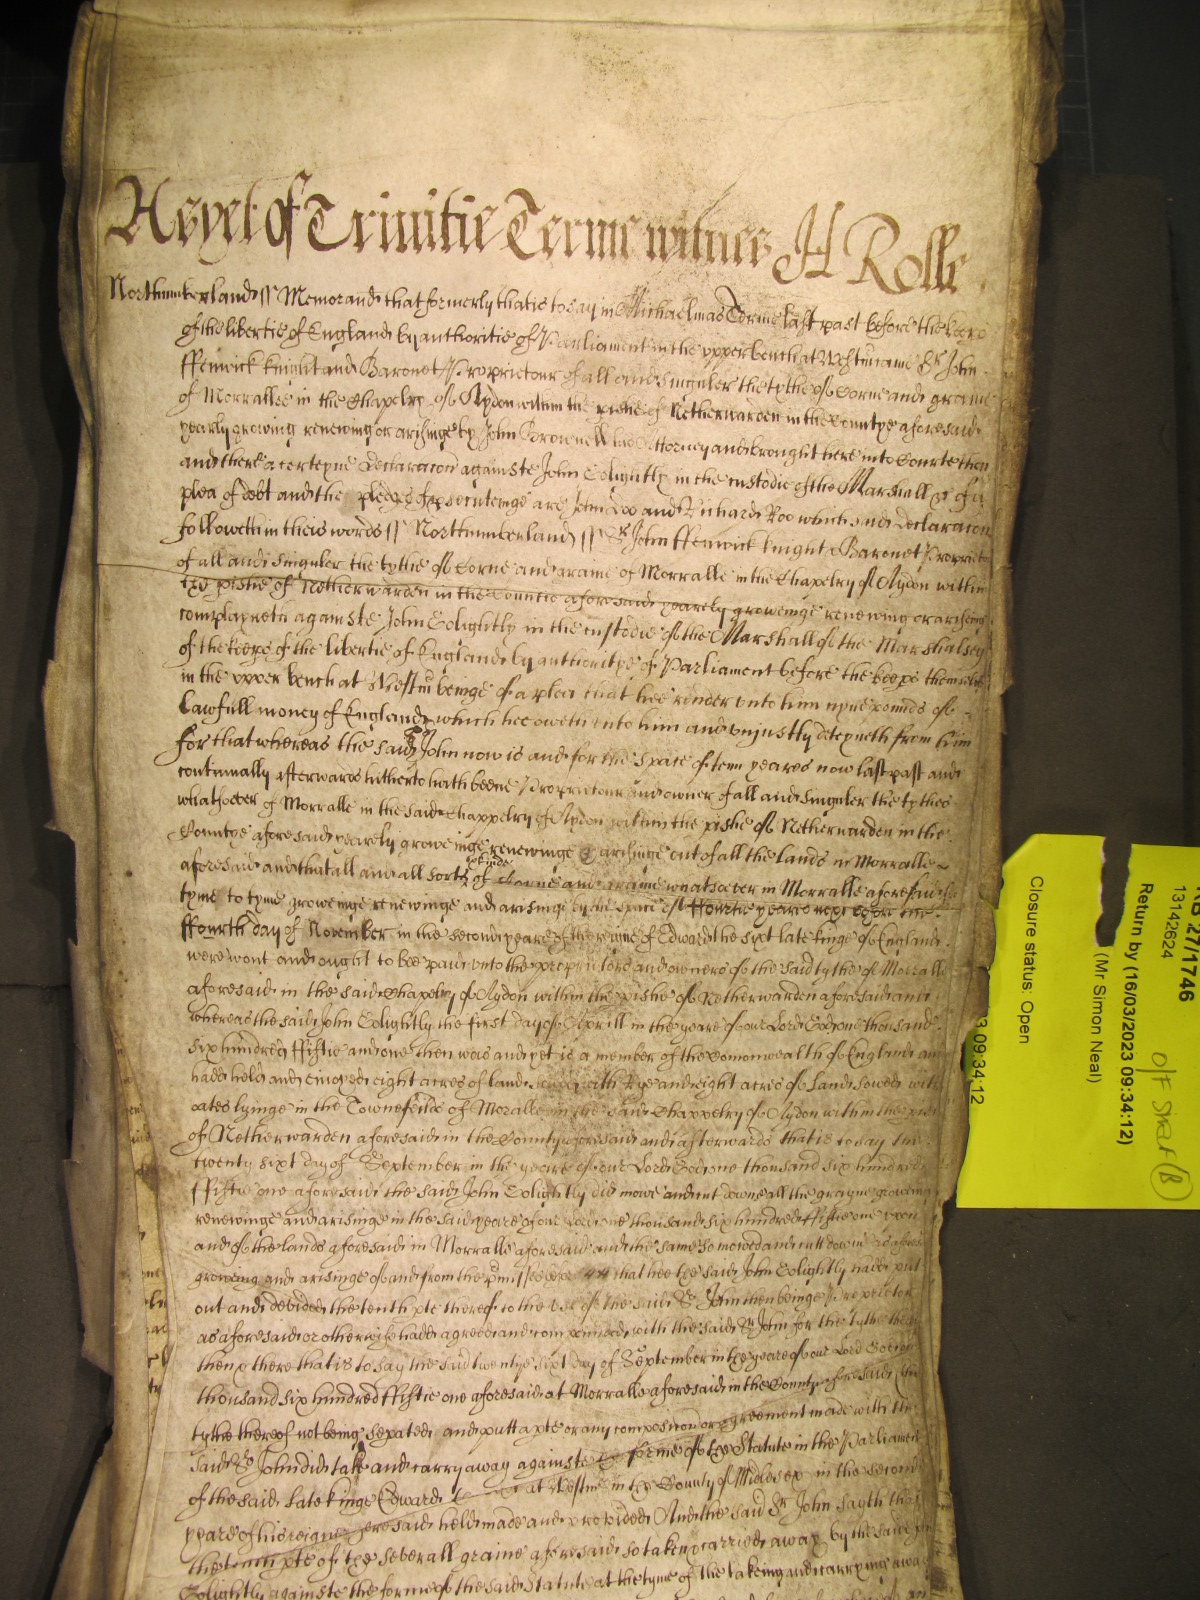 Heyet of Trinitie Terme witnes H Rolle
Northumberland ss Memorand that formerly that is to say in Michaelmas Terme last past before the keeps
of the libertie of England by authoritie of Parliament in the upper bench at Westm came Sr John
ffenwick knight and Baronet Proprietour of all and singuler the tythe of Corne and graine
of Morrallee in the Chapelry of Aydon within the pishe of Netherwarden in the Countye aforesaid
yearly growing renewing or arisinge by John Brownell his Attorney and brought here into Courte then
and there a certeyne Declaracon againste John Golightly in the custodie of the Marshall &c of a
plea of debt and the pledges of prosecuteinge are John Doo and Richard Roo which said Declaracon
followeth in theis words ss Northumberland ss Sr John ffenwick knight & Baronet Propriet
of all and singuler the tythe of Corne and graine of Morralle in the Chapelry of Aydon within
the pishe of Netherwarden in the Countie aforesaid yearely groweinge renewing or arisinge
complayneth againste John Golightly in the custodie of the Marshall of the Marshalsey
of the keeps of the libertie of England by authoritye of Parliament before the keeps themselves
in the upper bench at Westm beinge of a plea that hee render unto him nyne pounds of
lawfull money of England which hee oweth unto him and unjustly deteyneth from him
for that whereas the said Sr John now is and for the space of tenn yeares now last past and
continually afterwards hitherto hath beene Proprietour and owner of all and singuler the tythes
whatsoever of Morralle in the said Chappelry of Aydon within the pishe of Netherwarden in the
Countye aforesaid yearely groweinge renewinge & arisinge out of all the lands in Morralle
aforesaid and that all and all sorts of corne and graine whatsoever in Morralle aforesaid
tyme to tyme groweinge renewinge and arisinge by the space of ffourtie yeares next before the
ffourth day of November in the second yeare of the reigne of Edward the sixt late kinge of England
were wont and ought to bee paid unto the proprietors and owners of the said tythe of Morralle
aforesaid in the said Chapelry of Aydon within the pishe of Netherwarden aforesaid and
whereas the said John Golightly the first day of Aprill in the yeare of our Lord God one thousand
six hundred ffiftie and one then was and yet is a member of the Comonwealth of England and
hadd held and enioyed eight acres of land sowed with Rye and eight acres of land sowed with
oates lyinge in the Townefeilds of Moralle in the said Chappelry of Aydon within the pish
of Netherwarden aforesaid in the County aforesaid and afterwards that is to say the
twenty sixt day of September in the yeare of our Lord God one thousand six hundred
ffiftie one aforesaid the said John Golightly did mowe and cutt downe all the grayne groweing
renewinge and arisinge in the said yeare of our Lord one thousand six hundred ffiftie one upon
and of the lands aforesaid in Morralle aforesaid and the same so mowed and cutt downe as aforesaid
groweing and arisinge of and from the pmisses that hee the said John Golightly hadd put
out and devided the tenth pte thereof to the use of the said Sr John then beinge Proprietor
as aforesaid or otherwise hadd agreed and compounded with the said Sr John for the tythe
then & there that is to say the said twentye sixt day of September in the yeare of our Lord God one
thousand six hundred ffiftie one aforesaid at Morralle aforesaid in the County aforesaid the
tythe thereof not being sepated and putt apte or any composicon or agreement made with the
said Sr John did take and carry away againste the forme of the Statute in the Parliament
of the said late kinge Edward at Westm in the County of Middlesex in the second
yeare of his reigne aforesaid held made and provided And the said Sr John sayth that
the tenth pte of the severall graine aforesaid so taken & carried away by the said John
Golightly againste the forme of the said Statute at the tyme of the takeing and carrying away
KB 27/1746
13142624
Return by (16/03/2023 09:34:12)
(Mr Simon Neal)
Closure status: Open
09:34:12